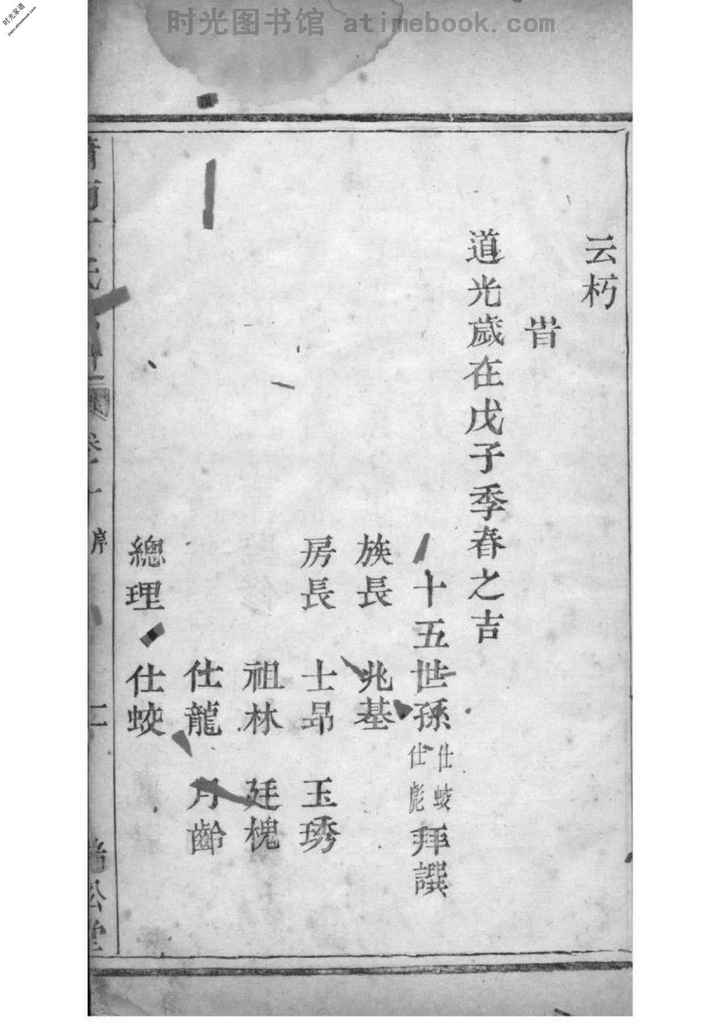 时光图书馆 atimebook.com
时光家谱
云朽
旹
道光歲在戊子季春之吉
十五世孫仕蛟仕彪拜譔
族長 兆基
房長 士昂 玉琇
祖林 廷槐
仕龍 月齡
總理 仕蛟
氏
序
二
公堂